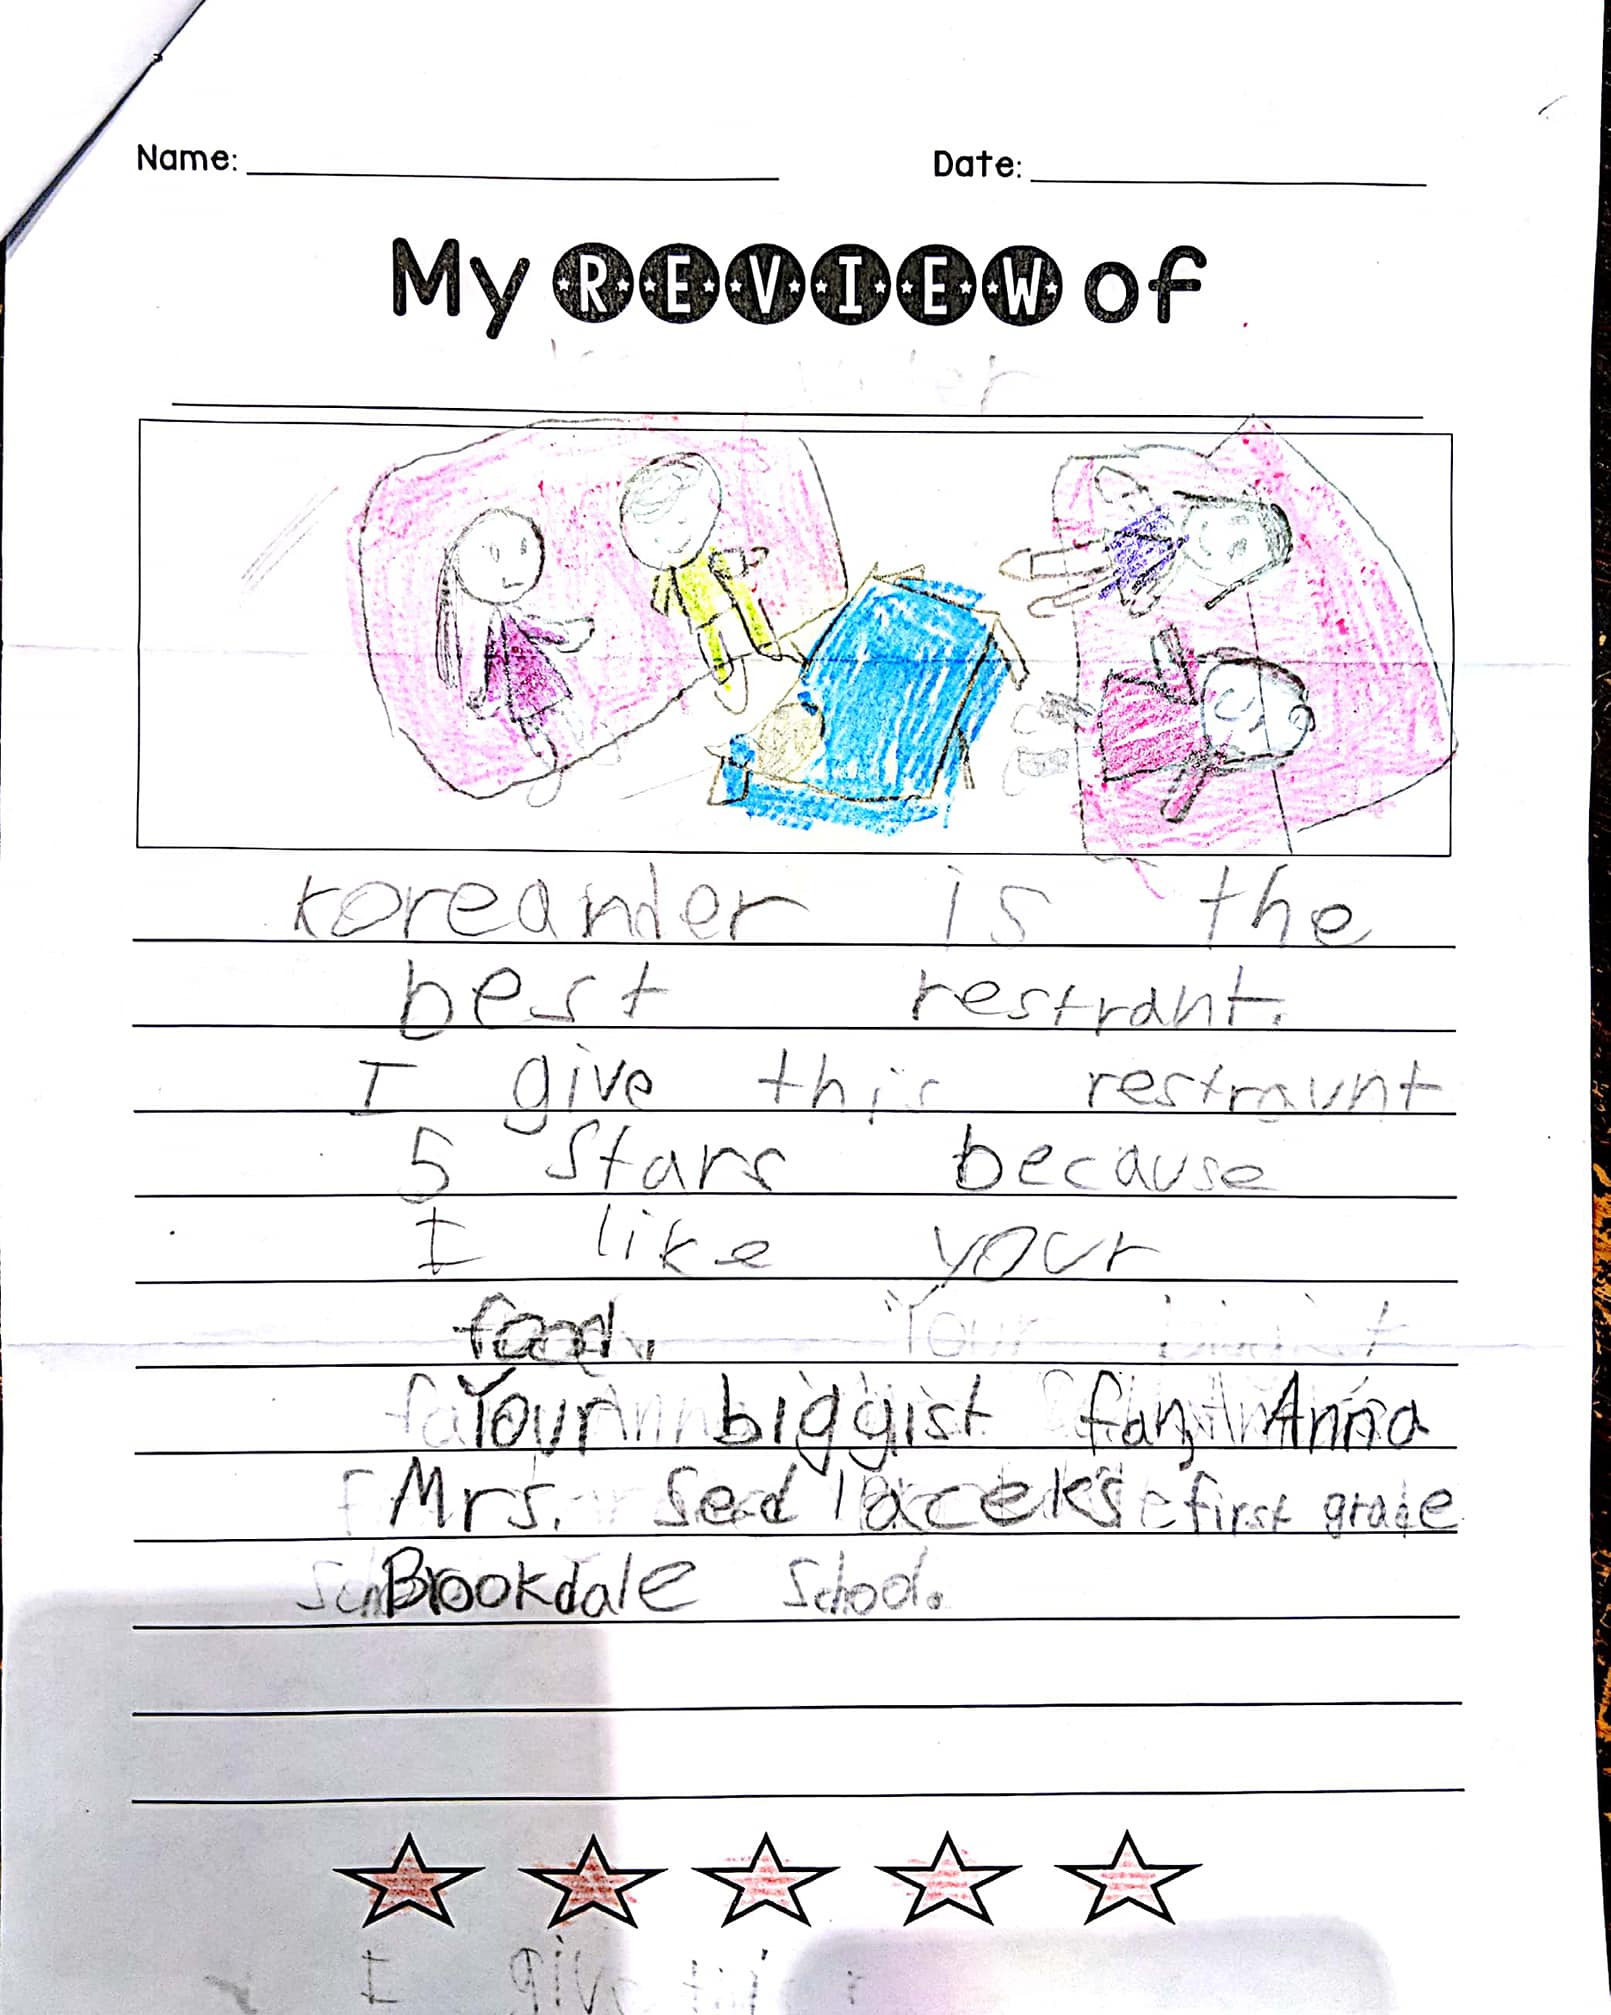 Name: Date:
My REVIEW of
koreander is the
best restrant.
I give this restraunt
5 stars because
I like your
food. Your
Your biggist fan, Anna
Mrs. first grade
Brookdale School.
I give